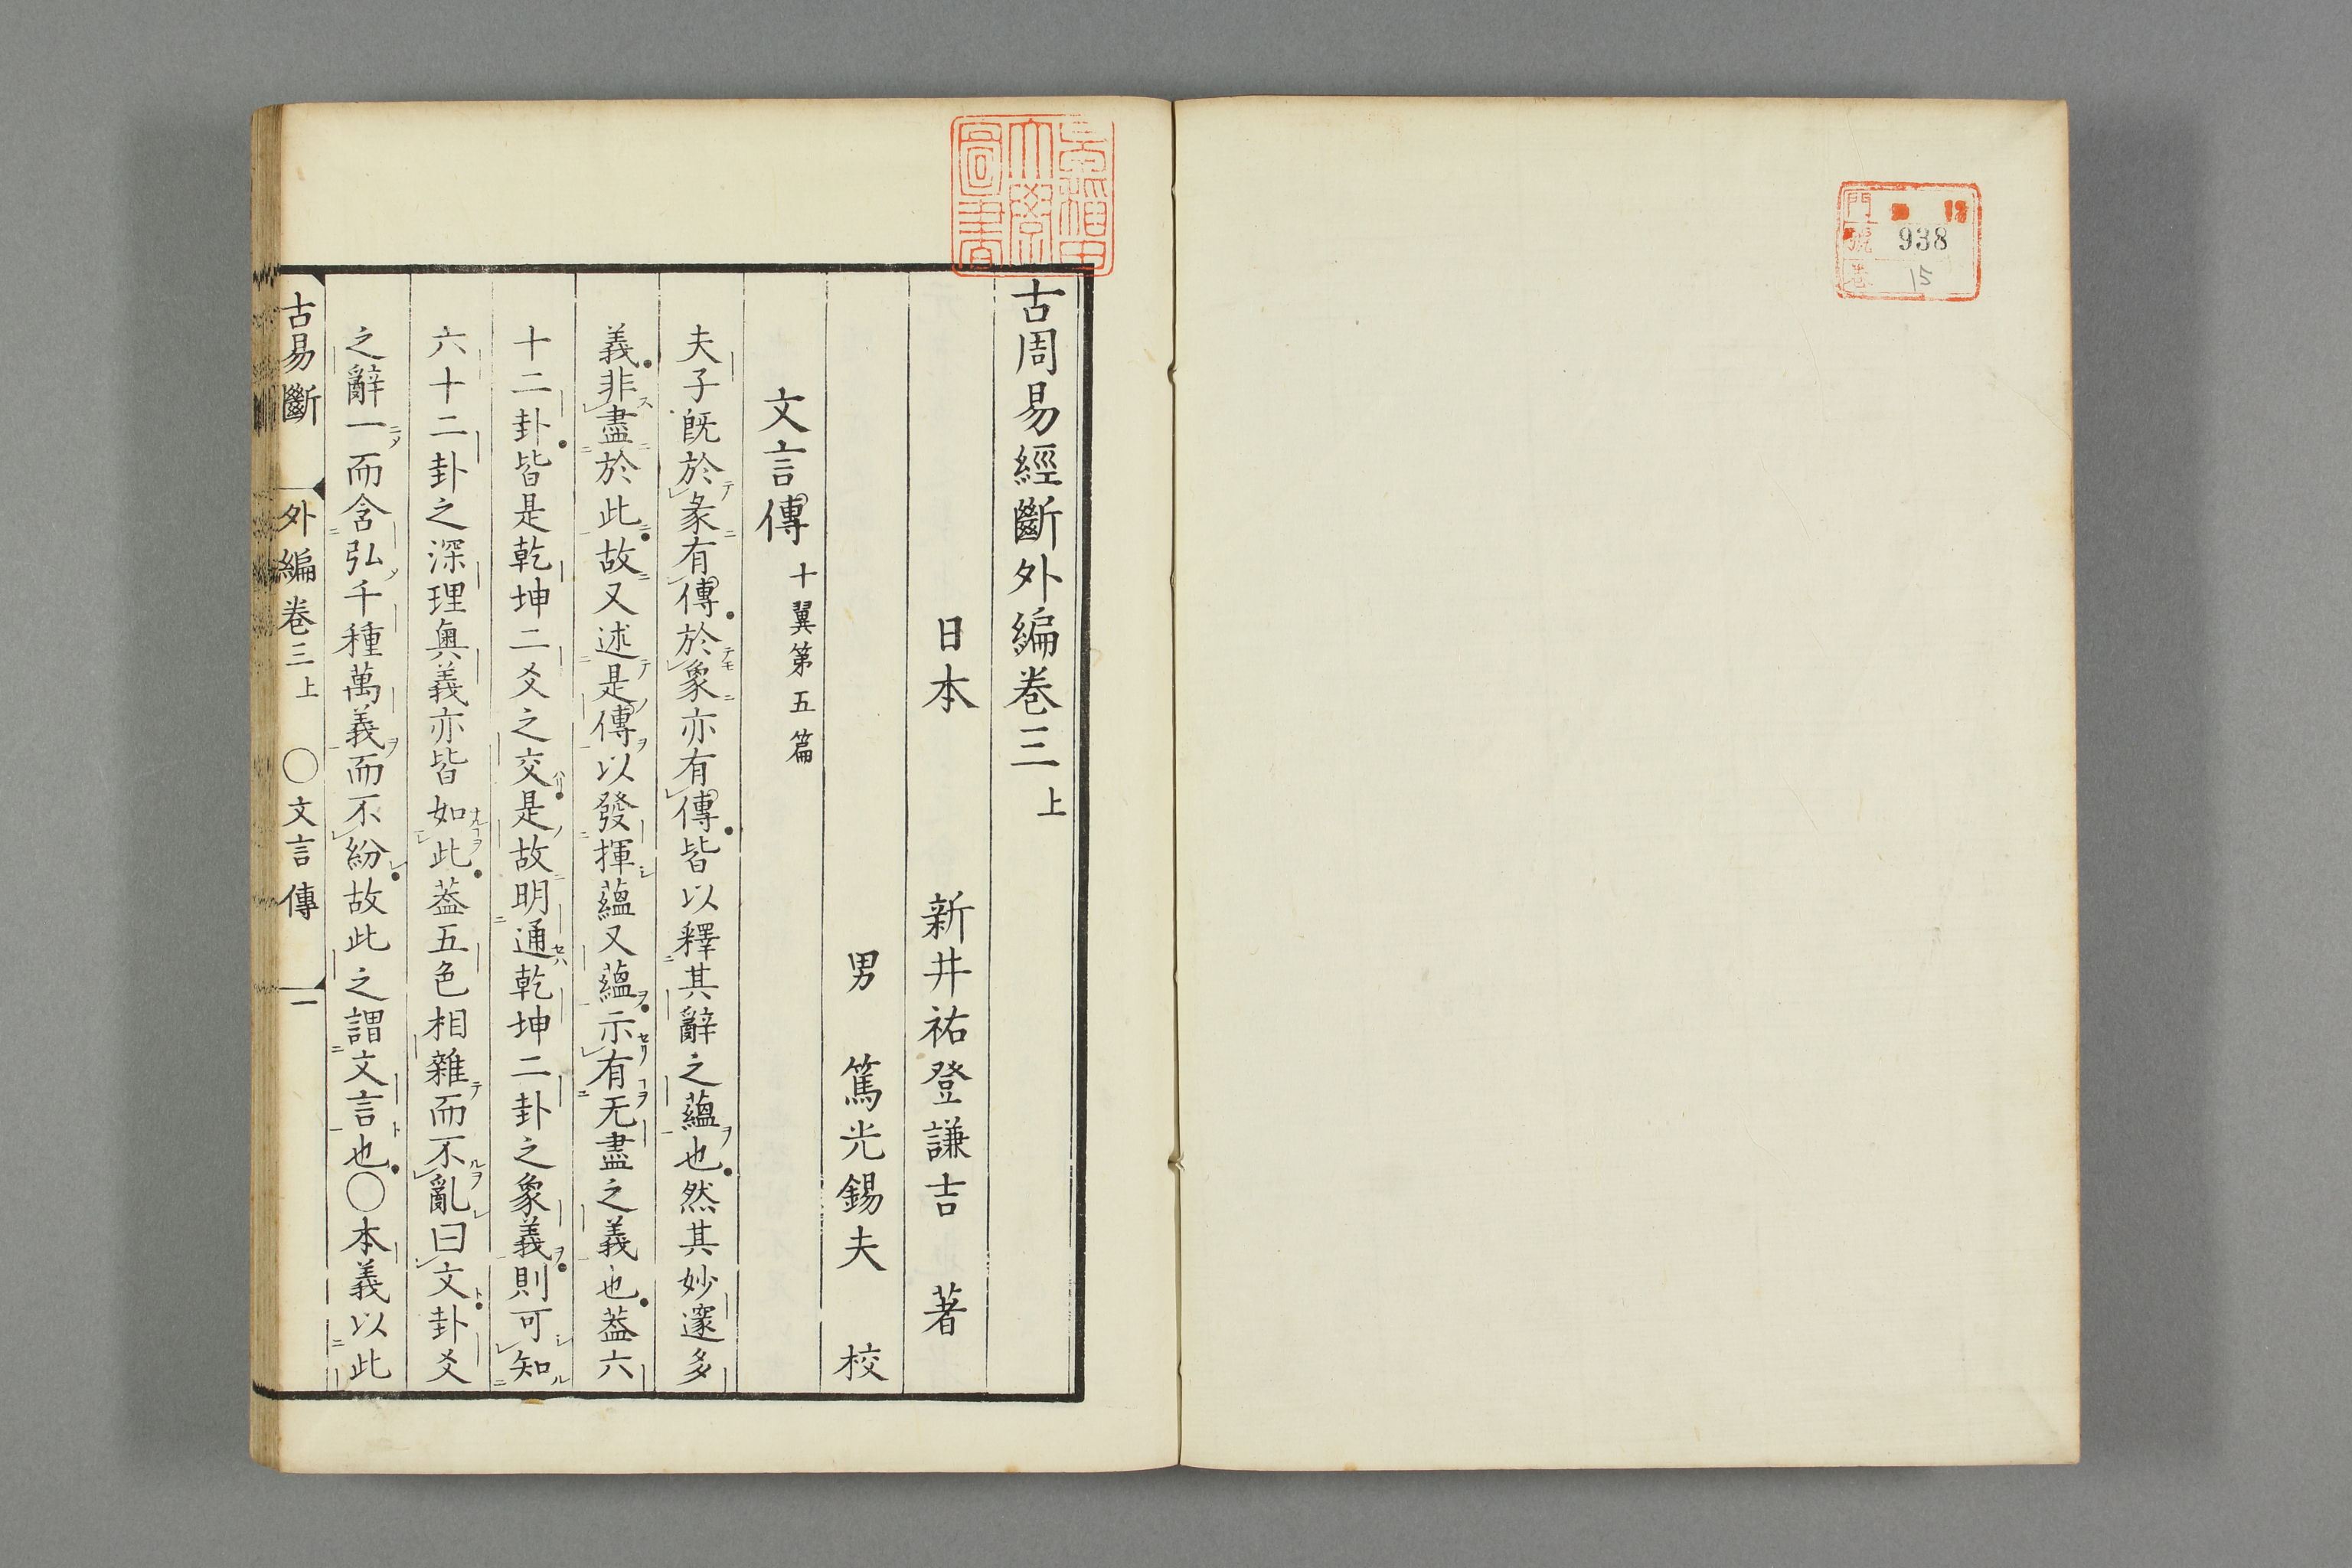 門
號 938
卷 15
早稲田
大學
圖書
古周易經斷外編卷三上
日本 新井祐登謙吉 著
男 篤光錫夫 校
文言傳 十翼第五篇
夫子既於彖有傳於象亦有傳皆以釋其辭之蘊也然其妙邃多
義非盡於此故又述是傳以發揮蘊又蘊示有无盡之義也蓋六
十二卦皆是乾坤二爻之交是故明通乾坤二卦之象義則可知
六十二卦之深理奧義亦皆如此蓋五色相雜而不亂曰文卦爻
之辭一而含弘千種萬義而不紛故此之謂文言也○本義以此
古易斷 外編卷三上 ○文言傳 一